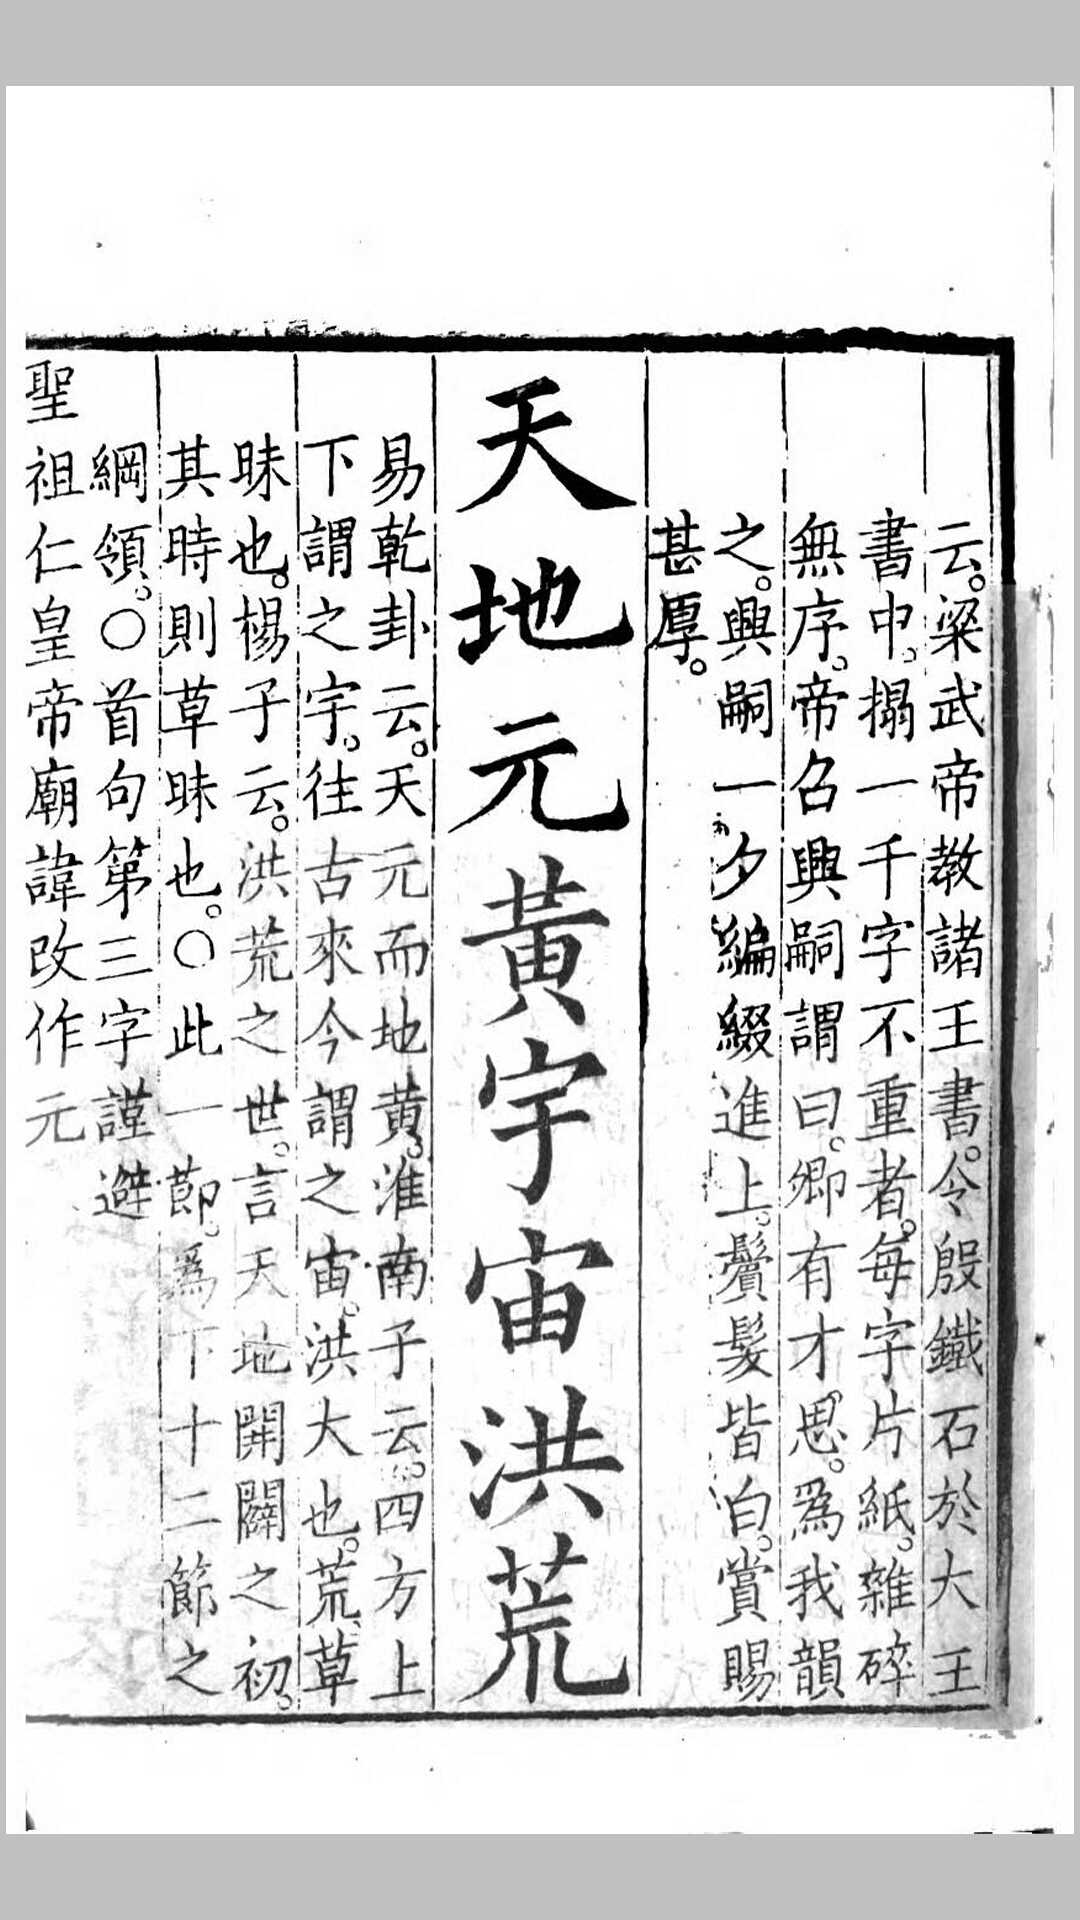 云。梁武帝教諸王書。令殷鐵石於大王
書中。搨一千字不重者。每字片紙。雜碎
無序。帝召興嗣謂曰。卿有才思。爲我韻
之。興嗣一夕編綴進上。鬢髮皆白。賞賜
甚厚。
天地元黃宇宙洪荒
易乾卦云。天元而地黄。淮南子云。四方上
下謂之宇。往古來今謂之宙。洪大也。荒草
昧也。楊子云。洪荒之世。言天地開闢之初。
其時則草昧也。○此一節。爲下十二節之
綱領。○首句第三字謹避
聖祖仁皇帝廟諱改作元